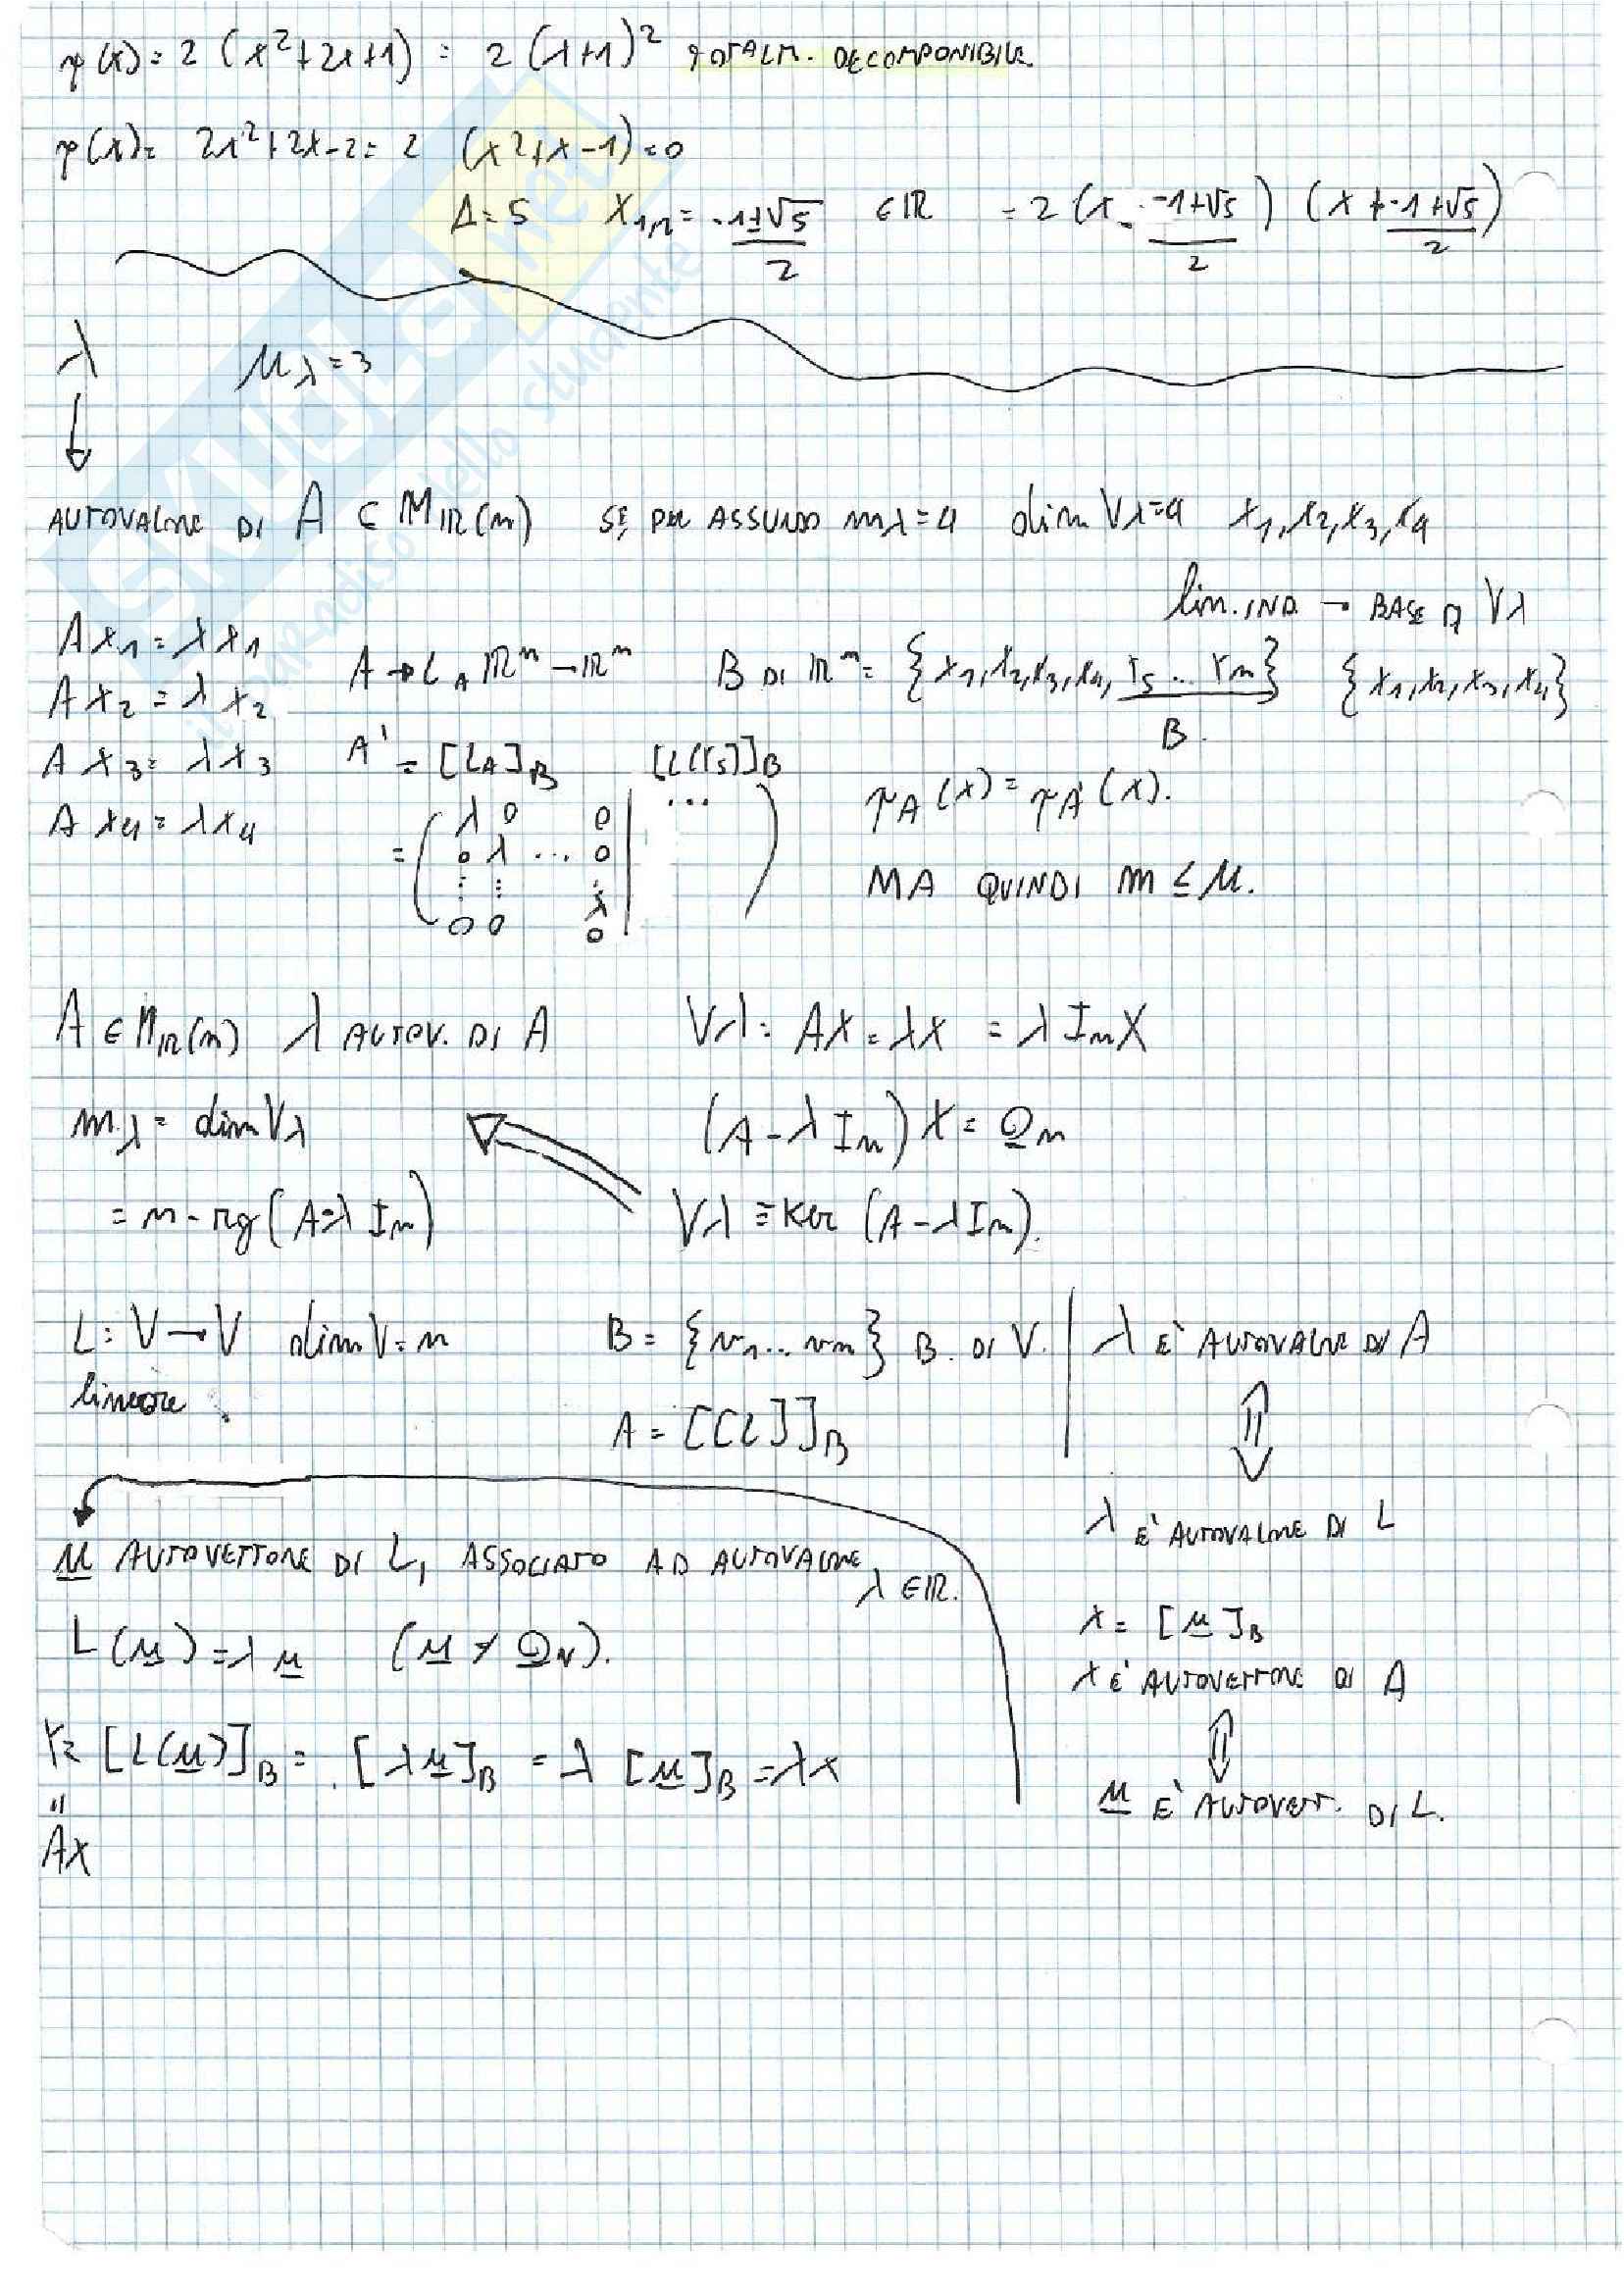 p(x) = 2 (x²+2x+1) = 2 (x+1)² TOTALM. DECOMPONIBILE.
p(x) = 2x²+2x-2 = 2 (x²+x-1)=0
Δ=5 X₁,₂ = -1±√5 / 2 ∈ ℝ = 2 (x - -1+√5 / 2) (x + -1+√5 / 2)
λ μλ=3
↓
AUTOVALORE DI A ∈ Mℝ(n) SE, PER ASSURDO mλ=4 dim Vλ=4 x₁,x₂,x₃,x₄
lin. IND. → BASE DI Vλ
Ax₁=λx₁ A → L_A ℝⁿ→ℝⁿ B DI ℝⁿ = {x₁,x₂,x₃,x₄, Y₅ ... Yn} {x₁,x₂,x₃,x₄}
Ax₂=λx₂ B.
Ax₃=λx₃ A' = [L_A]_B [L(Y₅)]_B
Ax₄=λx₄ = ( λ 0 0 | ... ) p_A(x) = p_A'(x).
0 λ ... 0
⋮ ⋮ ⋮ MA QUINDI m ≤ μ.
λ
0 0 0
A ∈ Mℝ(n) λ AUTOV. DI A Vλ: AX = λX = λ In X
mλ = dim Vλ (A-λ In) X = 0n
= n - rg (A-λ In) Vλ ≡ Ker (A-λIn).
L: V→V dim V=n B = {v₁...vn} B. DI V. | λ È AUTOVALORE DI A
lineare. A = [[L]]_B ⇕
λ È AUTOVALORE DI L
u AUTOVETTORE DI L, ASSOCIATO AD AUTOVALORE λ ∈ ℝ.
L(u) = λ u (u ≠ 0v). x = [u]_B
x È AUTOVETTORE DI A
⇕
Y = [L(u)]_B = [λu]_B = λ [u]_B = λx u È AUTOVETT. DI L.
"
AX
SKUOLA.net
il paradiso dello studente